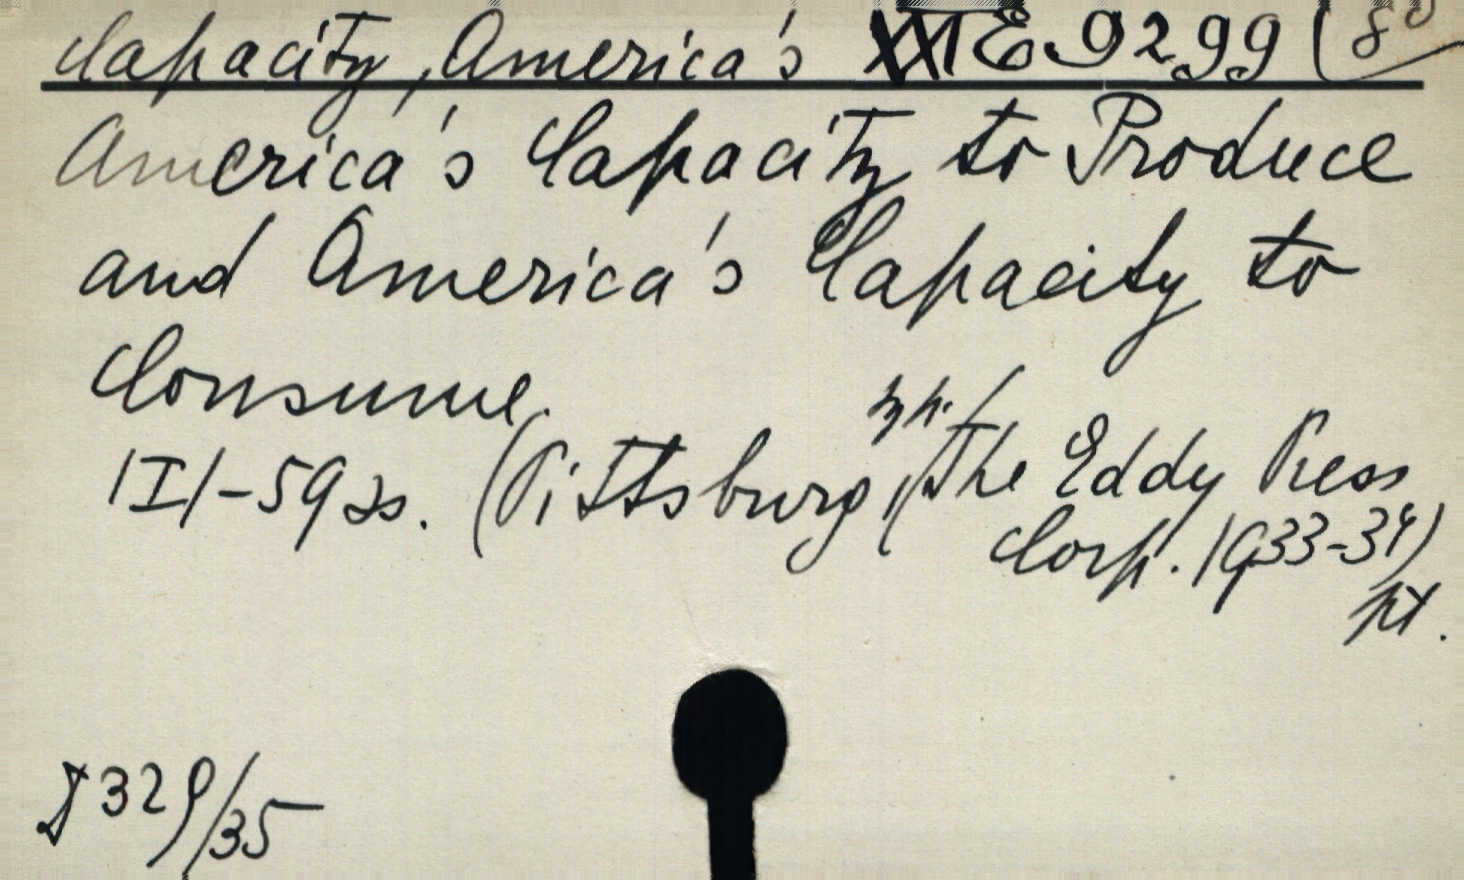 Capacity, America's XXI E 9299 (80
America's Capacity to Produce
and America's Capacity to
Consume.
|I|-59 ss. (Pittsburg, (The Eddy Press
Corp. 1933-34)
J 329/35